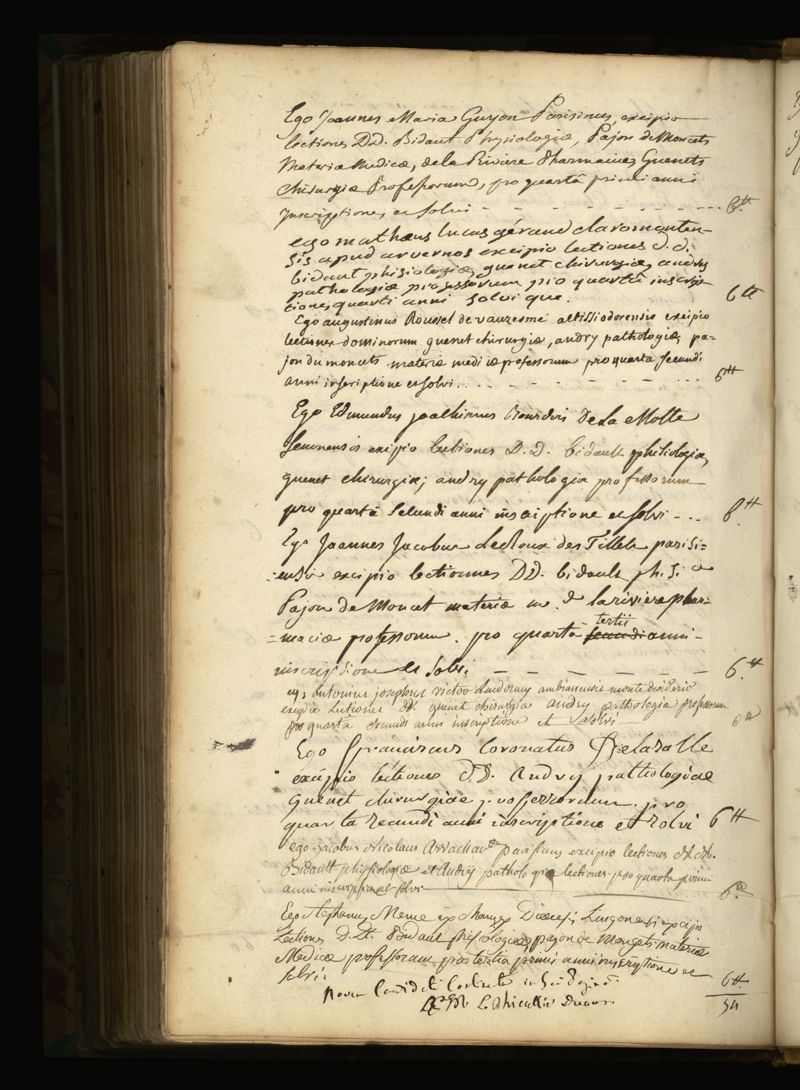 Ego Joannes Maria Guyon Parisinus, excipio
lectiones D.D. Bidaut Physiologiæ, Pajon de Moncets
Materiæ Medicæ, de la Riviere Pharmaciæ, Guenets
chirurgiæ Professorum, pro quartâ primi anni
Inscriptione, et solvi - - - 6tt
ego mathæus lucas géraud claromonten-
sis apud arvernos excipio lectiones d.d.
bidaut phisiologiæ, guenet chirurgiæ, andry
pathologiæ professorum pro quartâ inscrip-
tione quarti anni solvi que. 6tt
Ego augustinus Roussel de vauzesme altissiodorensis excipio
lectiones dominorum guenet chirurgiæ, andry pathologiæ, pa-
jon du moncets materiæ medicæ professorum pro quarta secundi
anni inscriptione et solvi... 6tt
Ego Edmundus joachimus De La Motte
senonensis excipio lectiones D.D. bidault philiologiæ,
guenet chirurgiæ; andry pathologiæ professorum
pro quartâ secundi anni inscriptione et solvi - .. 6tt
Ego Joannes Jacobus Lecloux des Tillets parisi=
=ensis excipio lectionnes DD. bidault phisi
Pajon de Moncet materiæ m. & la riviere phar=
=maciæ professorum. pro quarta tertii anni
inscriptione et solvi. - - - 6tt
ego antonius josephus victor ambianensis montedesiderio
excipio Lectiones DD. guenet chirurgiæ andry pathologiæ professorum
pro quartâ secundi anni inscriptione et solvi - 6tt
Ego franciscus Coronatus Delasalle
excipio lectiones d.D. Andry pathologiæ
guenet chirurgiæ professorum. pro
quarta secundi anni inscriptione et solvi 6tt
ego jacobus Nicolaus parisinus excipio lectiones dd.
Bidault physiologiæ et Andry pathologiæ lectiones pro quarta primi
anni inscriptione et solvi 6tt
Ego Stephanus Meme ex Diœcesi Lingonensi excipio
Lectiones D.D. Bidaut phisiologiæ, pajon de Monçets materiæ
Medicæ professorum, pro tertia primi anni inscriptione et
solvi 6tt
novem Candidati in hac paginâ
Decanus 54